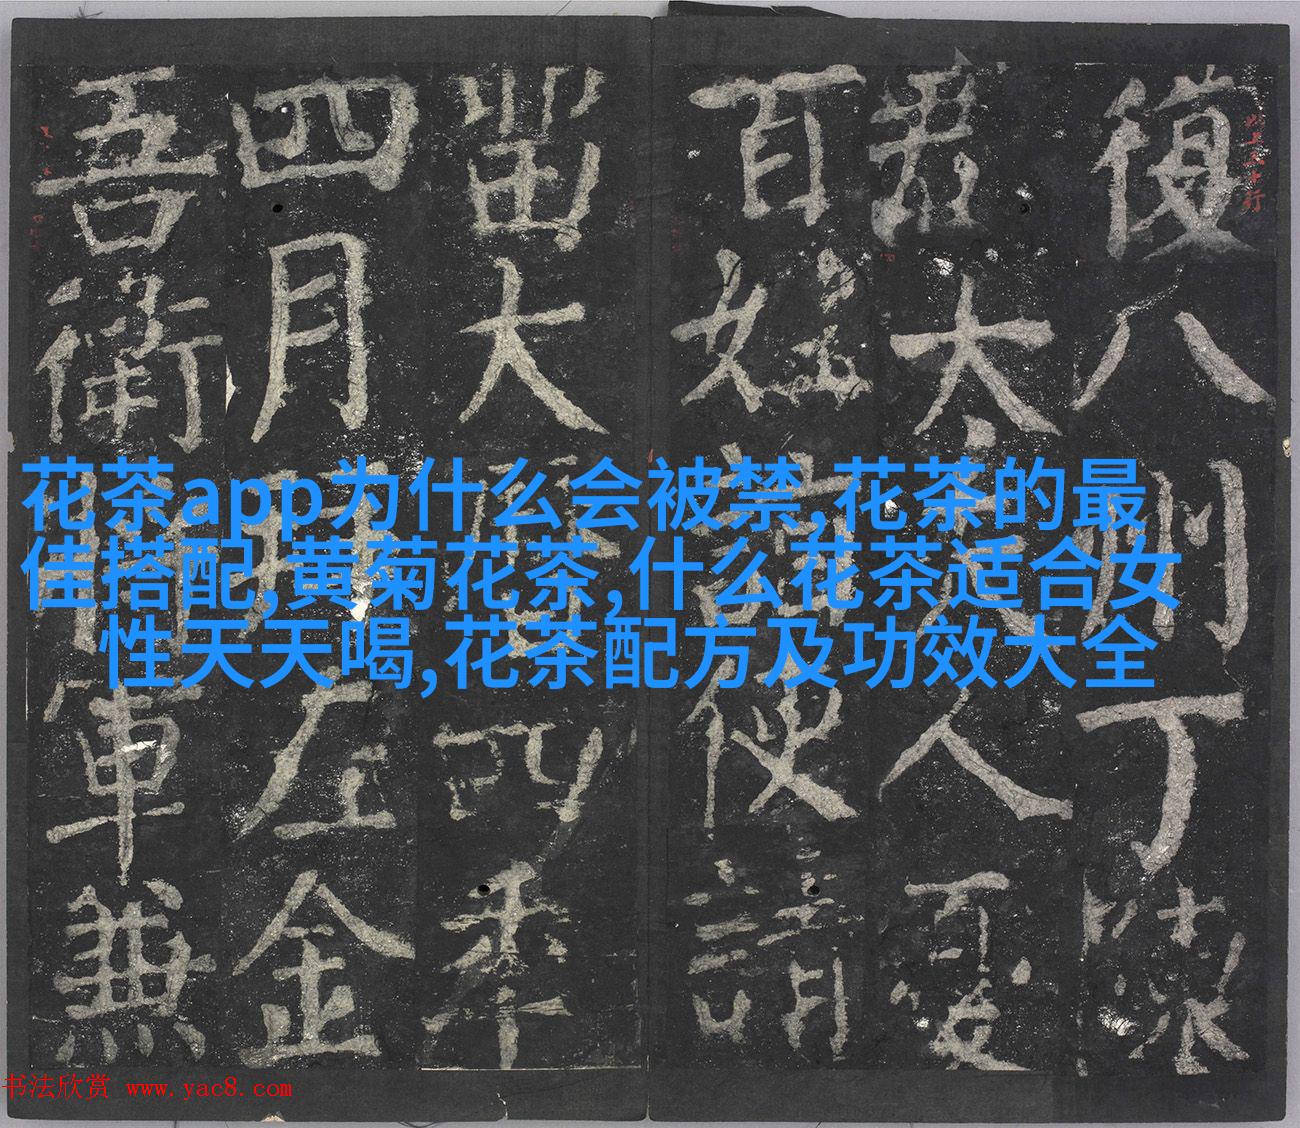 花茶app为什么会被禁,花茶的最
佳搭配,黄菊花茶,什么花茶适合女
性天天喝,花茶配方及功效大全
復八州丁陳
郡太夫人憂
百姓詣使請
留大曆四年
四月拜左金
吾衛將軍兼
书法欣赏 www.yac8.com